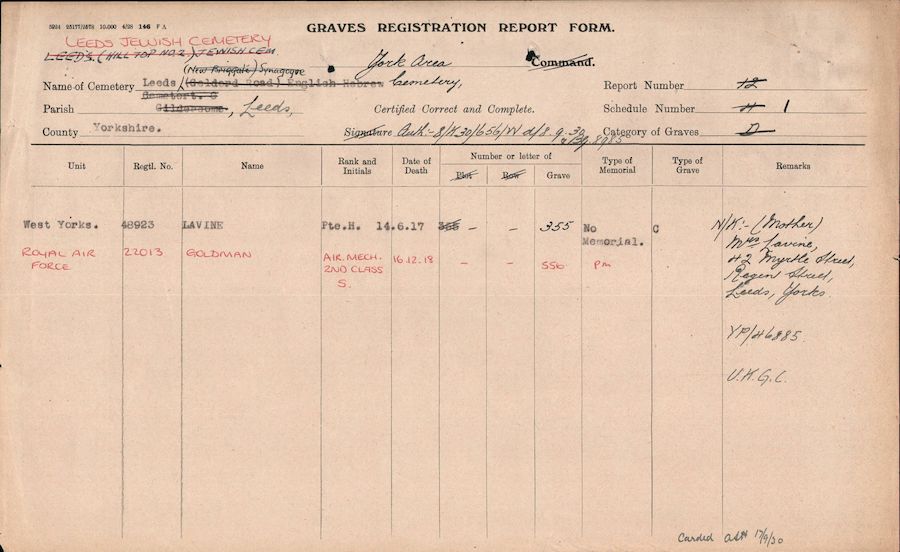 5924 25177/2578 10.000 4/28 146 F A
GRAVES REGISTRATION REPORT FORM.
LEEDS JEWISH CEMETERY
LEEDS. (HILL TOP NO. 2) JEWISH CEM.
(New Briggate) Synagogue
York Area Command.
Name of Cemetery Leeds (Gelderd Road) English Hebrew Cemetery, Report Number 12
Cemetery.
Parish Gildersome., Leeds, Certified Correct and Complete. Schedule Number 4 1
County Yorkshire. Signature Auth:- Category of Graves D
Unit Regtl. No. Name Rank and Initials Date of Death Number or letter of Type of Memorial Type of Grave Remarks
Plot Row Grave
West Yorks. 48923 LAVINE Pte.H. 14.6.17 355 - - 355 No Memorial. C N/K:- (Mother)
Mrs Lavine,
42 Myrtle Street,
Regent Street,
Leeds, Yorks.
ROYAL AIR FORCE 22013 GOLDMAN AIR. MECH. 2ND CLASS S. 16.12.18 - - 556 PM
YP/46885.
U.K.G.C.
Carded 17/9/30